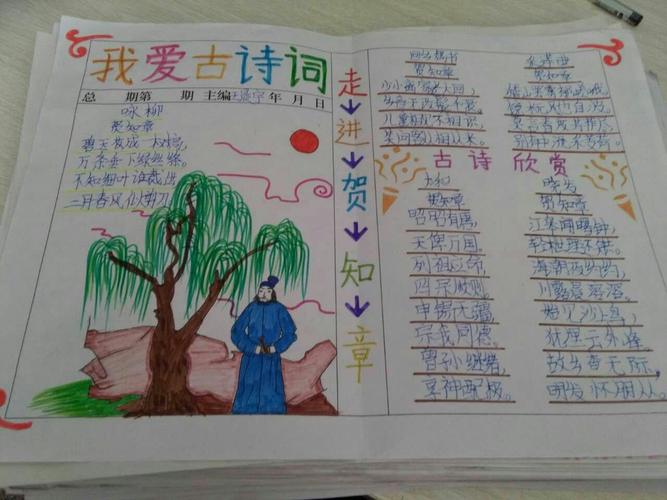 我爱古诗词
总 期第 期 主编 年 月 日
咏柳
贺知章
碧玉妆成一树高,
万条垂下绿丝绦。
不知细叶谁裁出,
二月春风似剪刀。
走进贺知章
回乡偶书
贺知章
少小离家老大回,
乡音无改鬓毛衰。
儿童相见不相识,
笑问客从何处来。
采莲曲
贺知章
莫言春度芳菲尽,
古诗欣赏
太和
贺知章
昭昭有唐,
天俾万国。
列祖应命,
四宗顺则。
申锡无疆,
宗我同德。
曾孙继绪,
享神配极。
晓发
贺知章
江皋闻曙钟,
海潮夜约约,
川露晨溶溶。
始见沙上鸟,
犹埋云外峰。
故乡杳无际,
明发怀朋从。